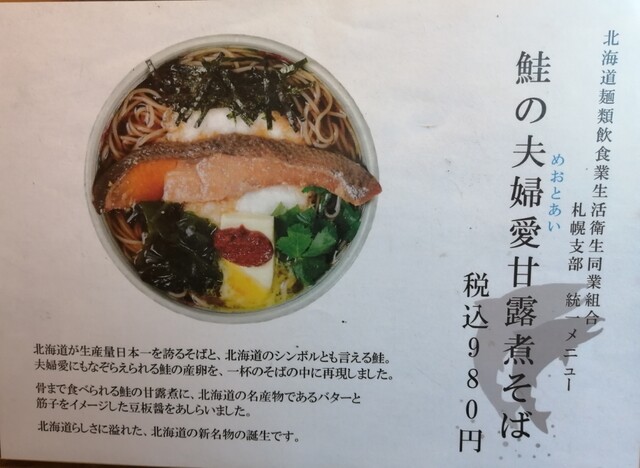 北海道麺類飲食業生活衛生同業組合
札幌支部 統一メニュー
鮭の夫婦愛甘露煮そば
めおとあい
税込980円
北海道が生産量日本一を誇るそばと、北海道のシンボルとも言える鮭。
夫婦愛にもなぞらえられる鮭の産卵を、一杯のそばの中に再現しました。
骨まで食べられる鮭の甘露煮に、北海道の名産物であるバターと
筋子をイメージした豆板醤をあしらいました。
北海道らしさに溢れた、北海道の新名物の誕生です。